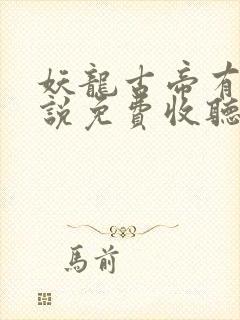 妖龍古帝有
說免費收聽
馬前